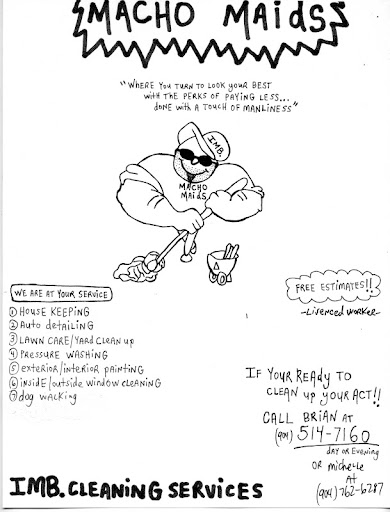 MACHO MAidS
"WHERE YOU TURN TO LOOK YOUR BEST
WITH THE PERKS OF PAYING LESS...
dONE WITH A TOUCH OF MANLINESS"
IMB.
MACHO
MAidS
WE ARE AT YOUR SERVICE
① HOUSE KEEPING
② AUTO dETAILING
③ LAWN CARE/YARD CLEAN UP
④ PRESSURE WASHING
⑤ EXTERIOR/INTERIOR PAINTING
⑥ INSIDE/OUTSIDE WINDOW CLEANING
⑦ dOG WACKING
FREE ESTIMATES!!
-LISENCED WORKER-
IF YOUR READY TO
CLEAN UP YOUR ACT!!
CALL BRIAN AT
(904) 514-7160
dAY OR EVENING
OR MICHELLE
AT
(904) 762-6287
IMB. CLEANING SERVICES